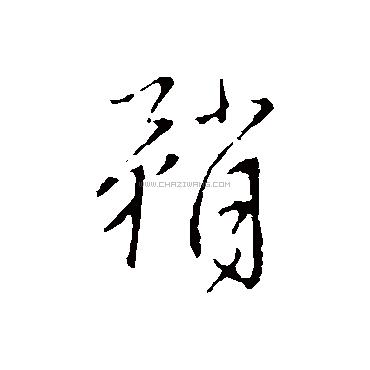 矟
WWW.CHAZIWANG.COM